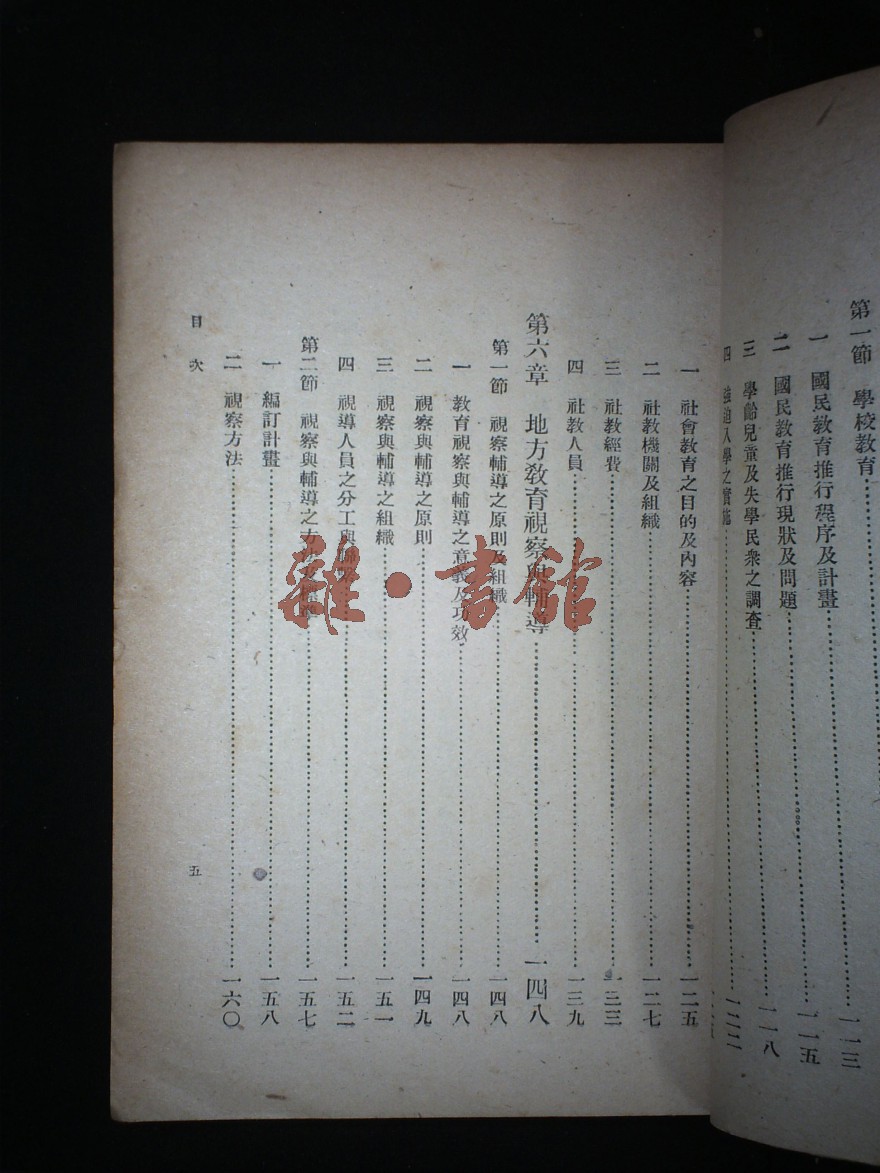 第一節 學校教育……一一三
一 國民教育推行程序及計畫……一一五
二 國民教育推行現狀及問題……一一八
三 學齡兒童及失學民衆之調查……一二二
四 強迫入學之實施……
一 社會教育之目的及內容……一二五
二 社教機關及組織……一二七
三 社教經費……一三三
四 社教人員……一三九
第六章 地方教育視察與輔導……一四八
第一節 視察輔導之原則及組織……一四八
一 教育視察與輔導之意義及功效……一四八
二 視察與輔導之原則……一四九
三 視察與輔導之組織……一五一
四 視導人員之分工與……一五二
第二節 視察與輔導之方……一五七
一 編訂計畫……一五八
二 視察方法……一六〇
目次
五
雜·書館